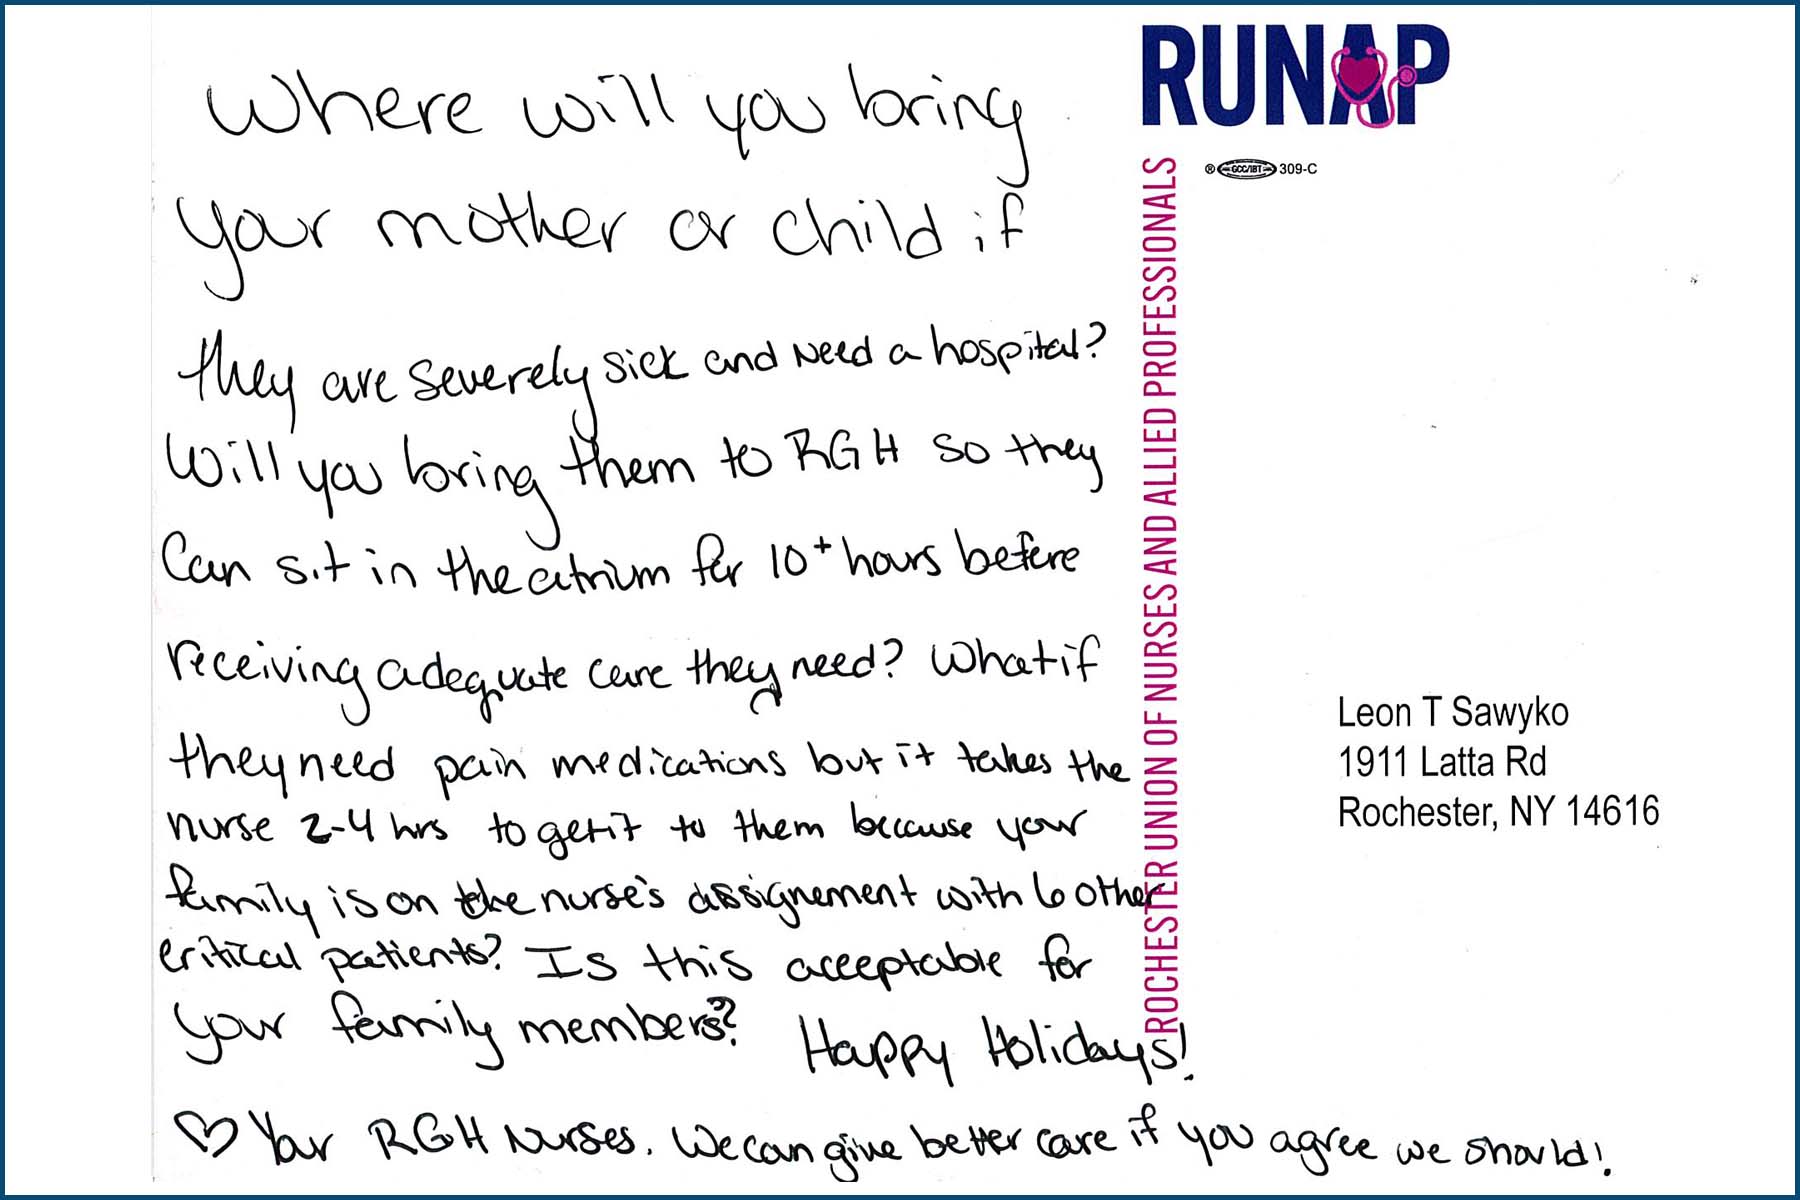 Where will you bring
your mother or child if
they are severely sick and need a hospital?
Will you bring them to RGH so they
can sit in the atrium for 10+ hours before
receiving adequate care they need? What if
they need pain medications but it takes the
nurse 2-4 hrs to get it to them because your
family is on the nurse's assignement with 6 other
critical patients? Is this acceptable for
your family members? Happy Holidays!
♡ Your RGH Nurses. We can give better care if you agree we should!
RUNAP
® GCC/IBT 309-C
ROCHESTER UNION OF NURSES AND ALLIED PROFESSIONALS
Leon T Sawyko
1911 Latta Rd
Rochester, NY 14616